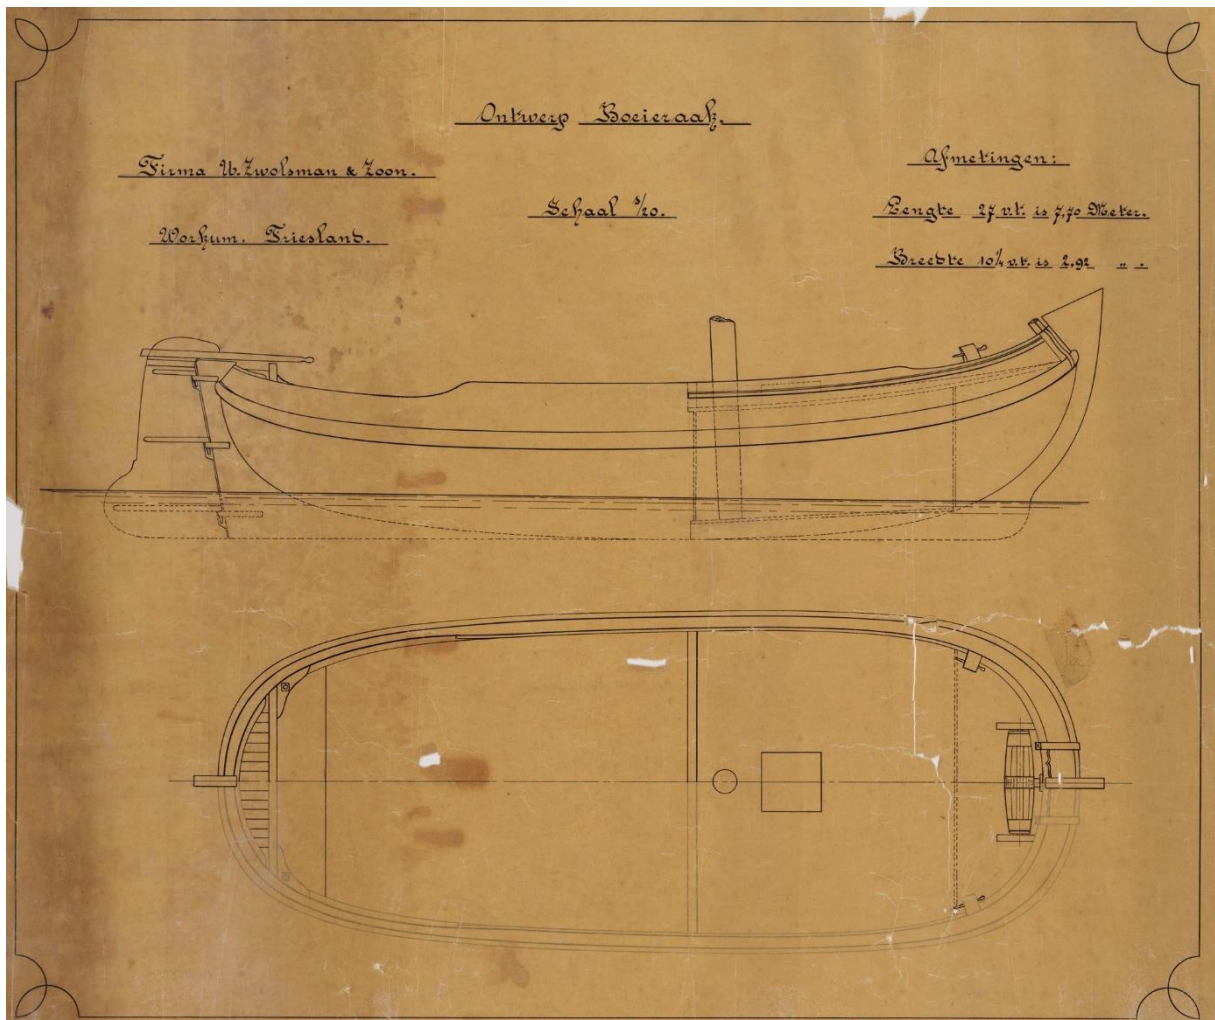 Ontwerp Boeieraak.
Firma U. Zwolsman & Zoon.
Workum. Friesland.
Schaal 1/20.
Afmetingen:
Lengte 27 v.t. is 7,70 Meter.
Breedte 10¼ v.t. is 2,92 „ .